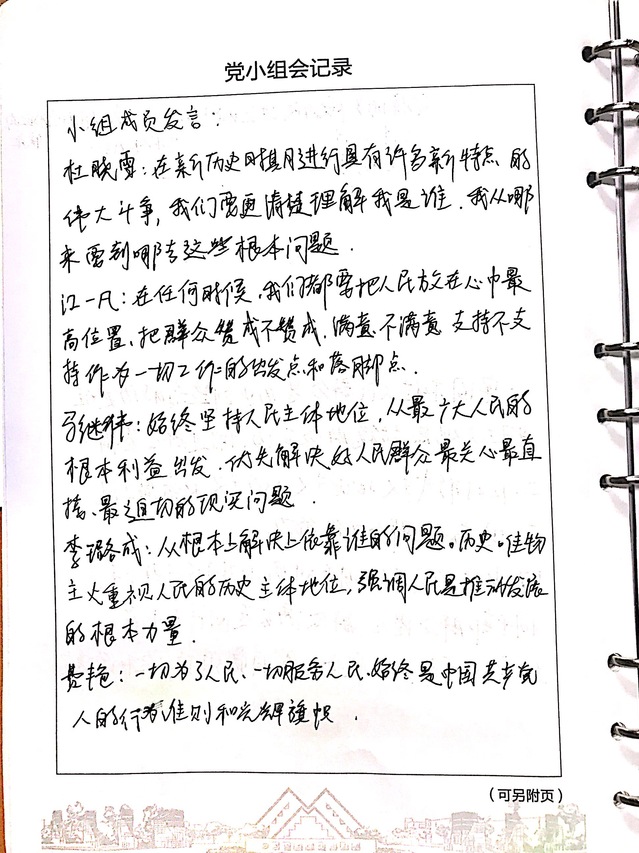 党小组会记录
小组成员发言：
杜晓雪：在新历史时期进行具有许多新特点的
伟大斗争，我们要更清楚理解我是谁、我从哪
来要到哪去这些根本问题．
江一凡：在任何时候，我们都要把人民放在心中最
高位置、把群众赞成不赞成、满意不满意 支持不支
持作为一切工作的出发点和落脚点．
继伟：始终坚持人民主体地位，从最广大人民的
根本利益出发．优先解决好人民群众最关心最直
接、最迫切的现实问题．
李璐成：从根本上解决上依靠谁的问题。历史唯物
主义重视人民的历史主体地位，强调人民是推动发展
的根本力量．
娄艳：一切为了人民、一切服务人民、始终是中国共产党
人的行为准则和光辉旗帜．
（可另附页）